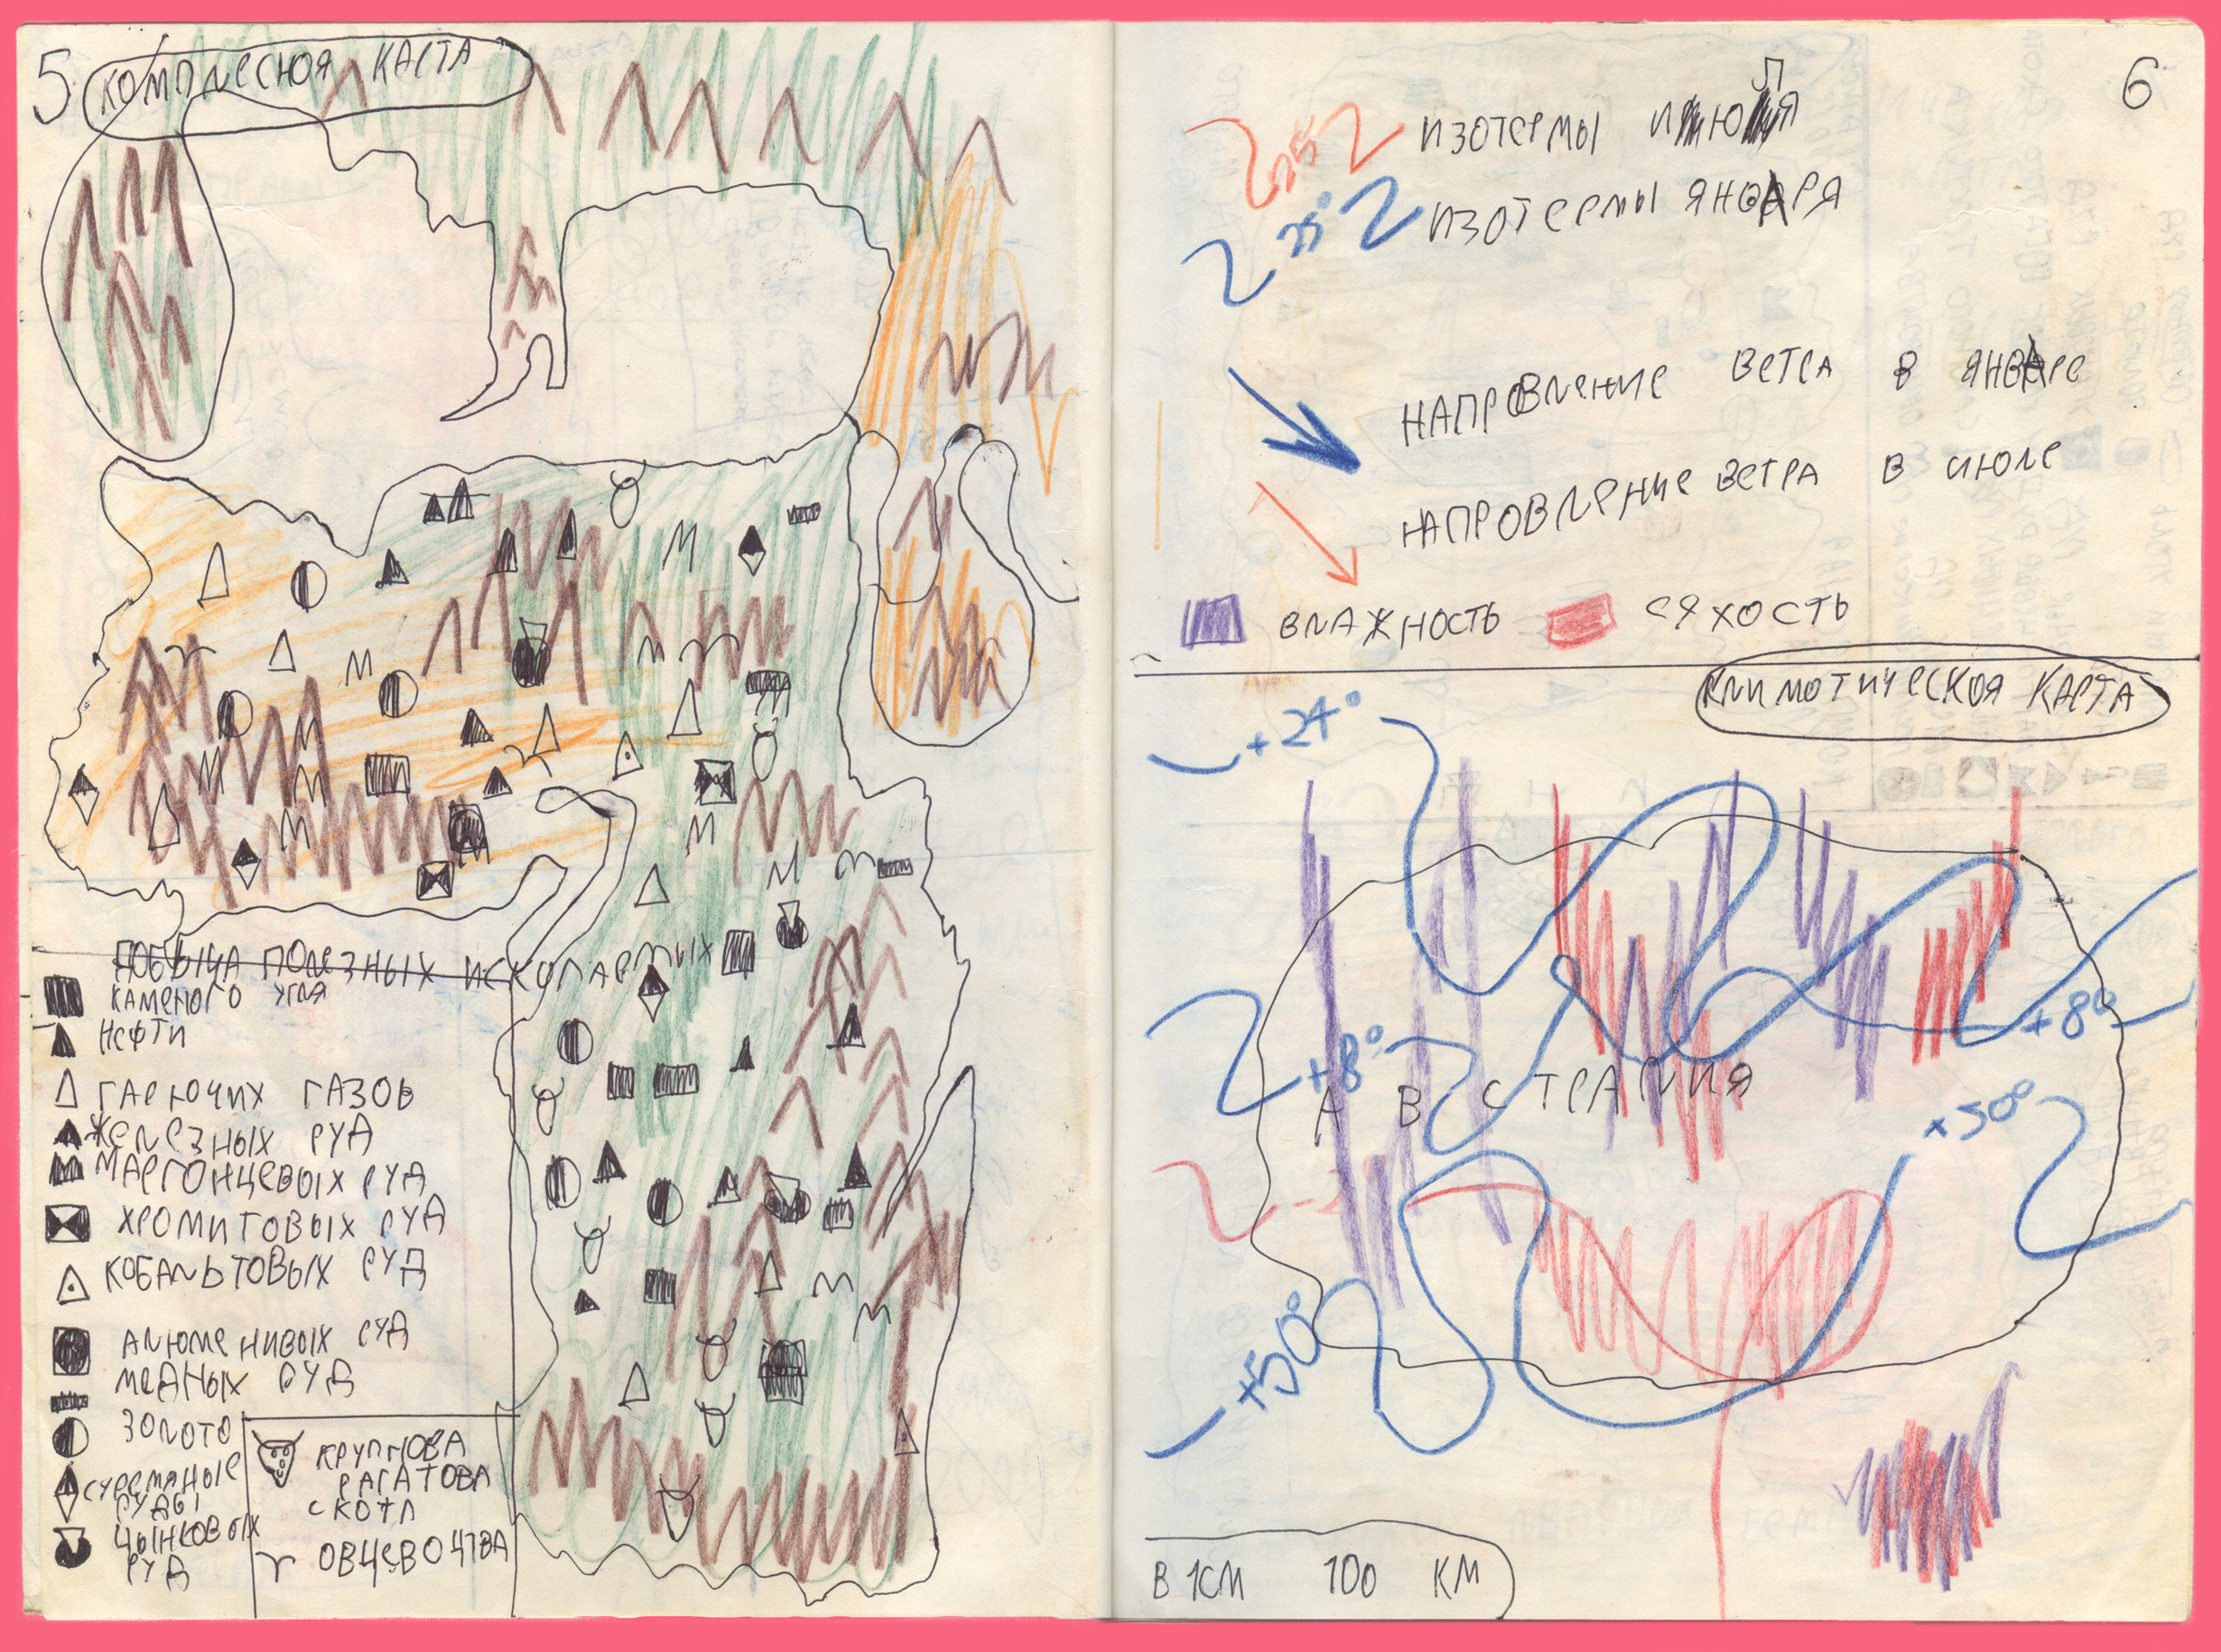 5
КОМПЛЕСНОЯ КАРТА
ДОБЫЧА ПОЛЕЗНЫХ ИСКОПАЕМЫХ
КАМЕНОГО УГЛЯ
НЕФТИ
ГАРЮЧИХ ГАЗОВ
ЖЕЛЕЗНЫХ РУД
МАРГОНЦЕВЫХ РУД
ХРОМИТОВЫХ РУД
КОБАЛЬТОВЫХ РУД
АЛЮМЕНИВЫХ РУД
МЕДНЫХ РУД
ЗОЛОТО
СУРЕМЯНЫЕ
РУДЫ
ЦЫНКОВЫХ
РУД
КРУПНОВА
РАГАТОВА
СКОТА
ОВЦЕВОЦТВА
6
25
ИЗОТЕРМЫ ИЮЛЯ
35°
ИЗОТЕРМЫ ЯНВАРЯ
НАПРОВЛЕНИЕ ВЕТРА В ЯНВАРЕ
НАПРОВЛЕНИЕ ВЕТРА В ИЮЛЕ
ВЛАЖНОСТЬ СЯХОСТЬ
КЛИМОТИЧЕСКОЯ КАРТА
+24°
+8°
+8°
АВСТРАЛИЯ
+50°
+50°
В 1СМ 100 КМ